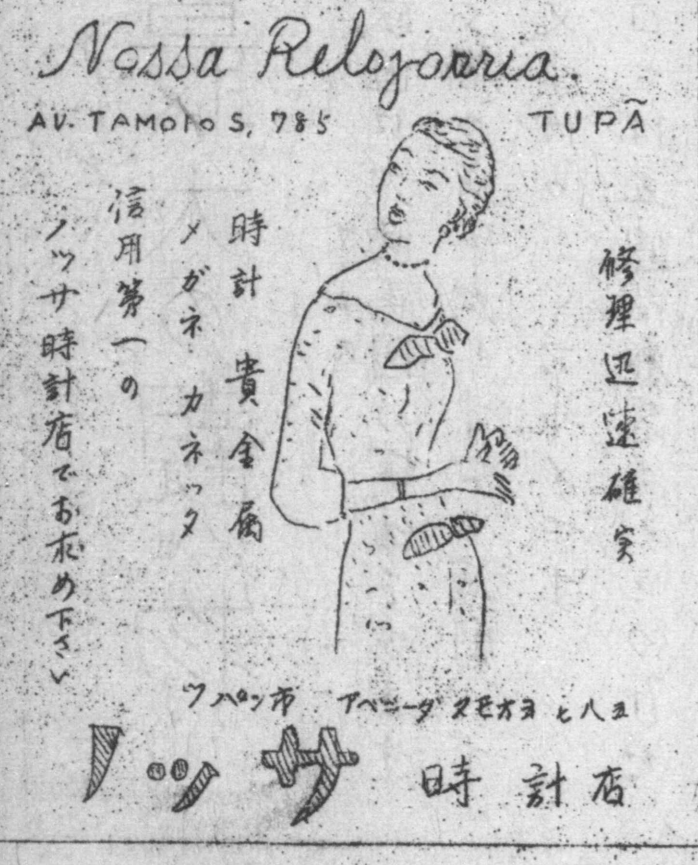 Nossa Relojoaria.
AV. TAMOIOS, 785 TUPÃ
修理迅速確実
時計 貴金属
メガネ カネッタ
信用第一の
ノッサ時計店でお求め下さい
ツパン市 アベニーダ タモオヨ 七八五
ノッサ 時計店